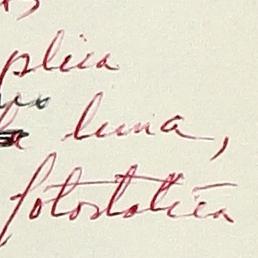 plica
la luna,
fotostatica